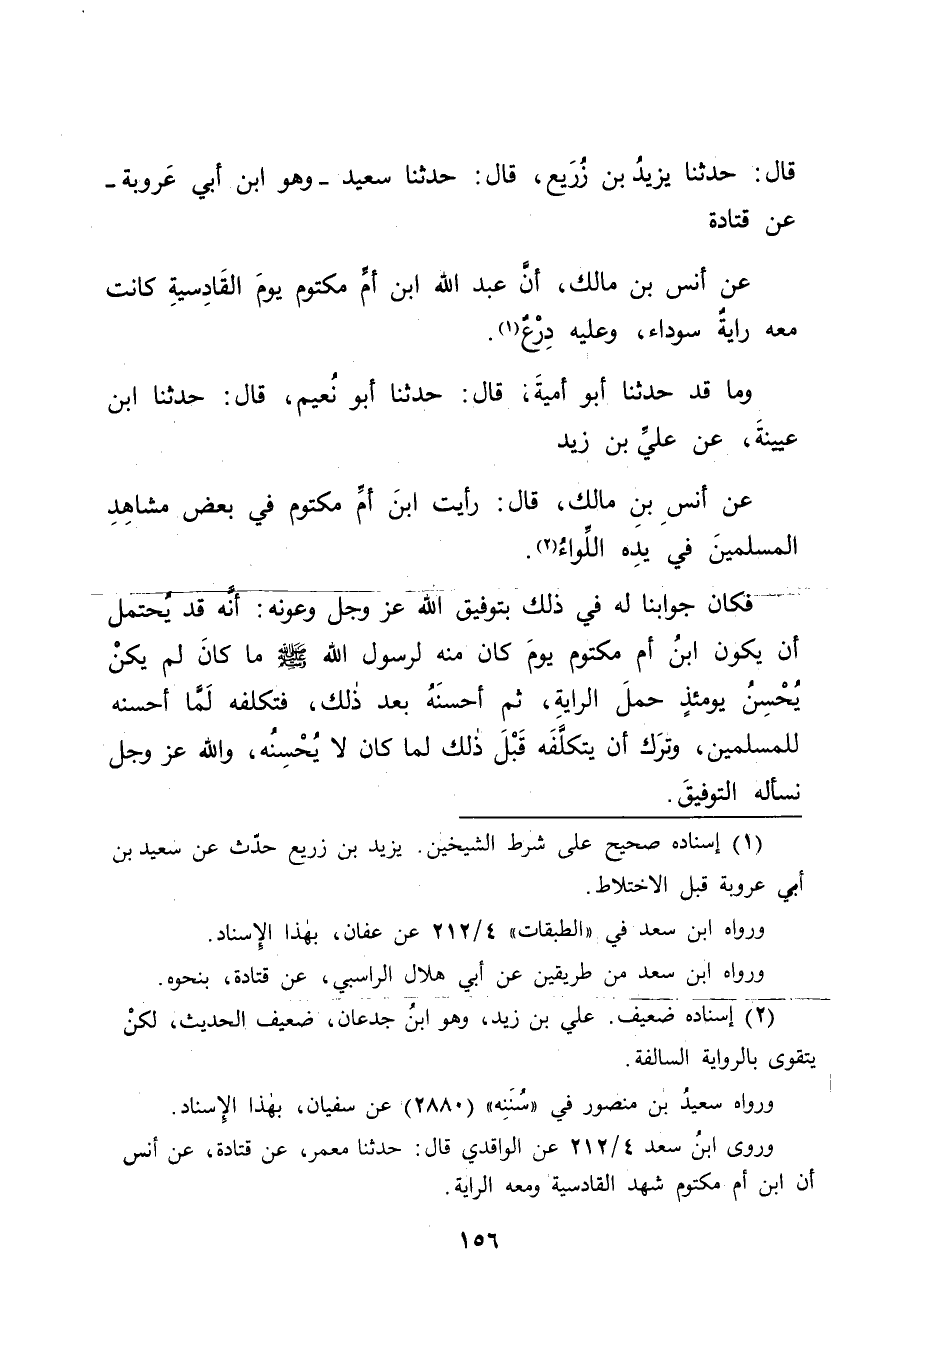 قال: حدثنا يزيدُ بن زُرَيع، قال: حدثنا سعيد ـ وهو ابن أبي عَروبة ـ
عن قتادة
عن أنس بن مالك، أنَّ عبد الله ابن أمِّ مكتوم يومَ القَادِسيةِ كانت
معه رايةٌ سوداء، وعليه دِرْعٌ(١).
وما قد حدثنا أبو أميةَ، قال: حدثنا أبو نُعيم، قال: حدثنا ابن
عيينةَ، عن عليِّ بن زيد
عن أنسِ بنِ مالك، قال: رأيت ابنَ أمِّ مكتوم في بعض مشاهِدِ
المسلمينَ في يدِه اللِّواءُ(٢).
فكان جوابنا له في ذلك بتوفيق الله عز وجل وعونه: أنَّه قد يُحتمل
أن يكون ابنُ أم مكتوم يومَ كان منه لرسول الله ﷺ ما كانَ لم يكنْ
يُحْسِنُ يومئذٍ حملَ الرايةِ، ثم أحسنَهُ بعد ذٰلك، فتكلفه لَمَّا أحسنه
للمسلمين، وترَك أن يتكلَّفَه قَبْلَ ذٰلك لما كان لا يُحْسِنُه، والله عز وجل
نسأله التوفيقَ.
(١) إسناده صحيح على شرط الشيخين. يزيد بن زريع حدّث عن سعيد بن
أبي عروبة قبل الاختلاط.
ورواه ابن سعد في «الطبقات» ٢١٢/٤ عن عفان، بهٰذا الإِسناد.
ورواه ابن سعد من طريقين عن أبي هلال الراسبي، عن قتادة، بنحوه.
(٢) إسناده ضعيف. علي بن زيد، وهو ابنُ جدعان، ضعيف الحديث، لكنْ
يتقوى بالرواية السالفة.
ورواه سعيدُ بن منصور في «سُنَنِه» (٢٨٨٠) عن سفيان، بهٰذا الإِسناد.
وروى ابنُ سعد ٢١٢/٤ عن الواقدي قال: حدثنا معمر، عن قتادة، عن أنس
أن ابن أم مكتوم شهد القادسية ومعه الراية.
١٥٦